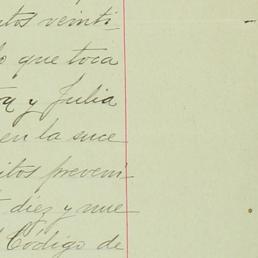 ntos veinti-
o que toca
ta y Julia
en la suce
itos preveni
diez y nue
Código de